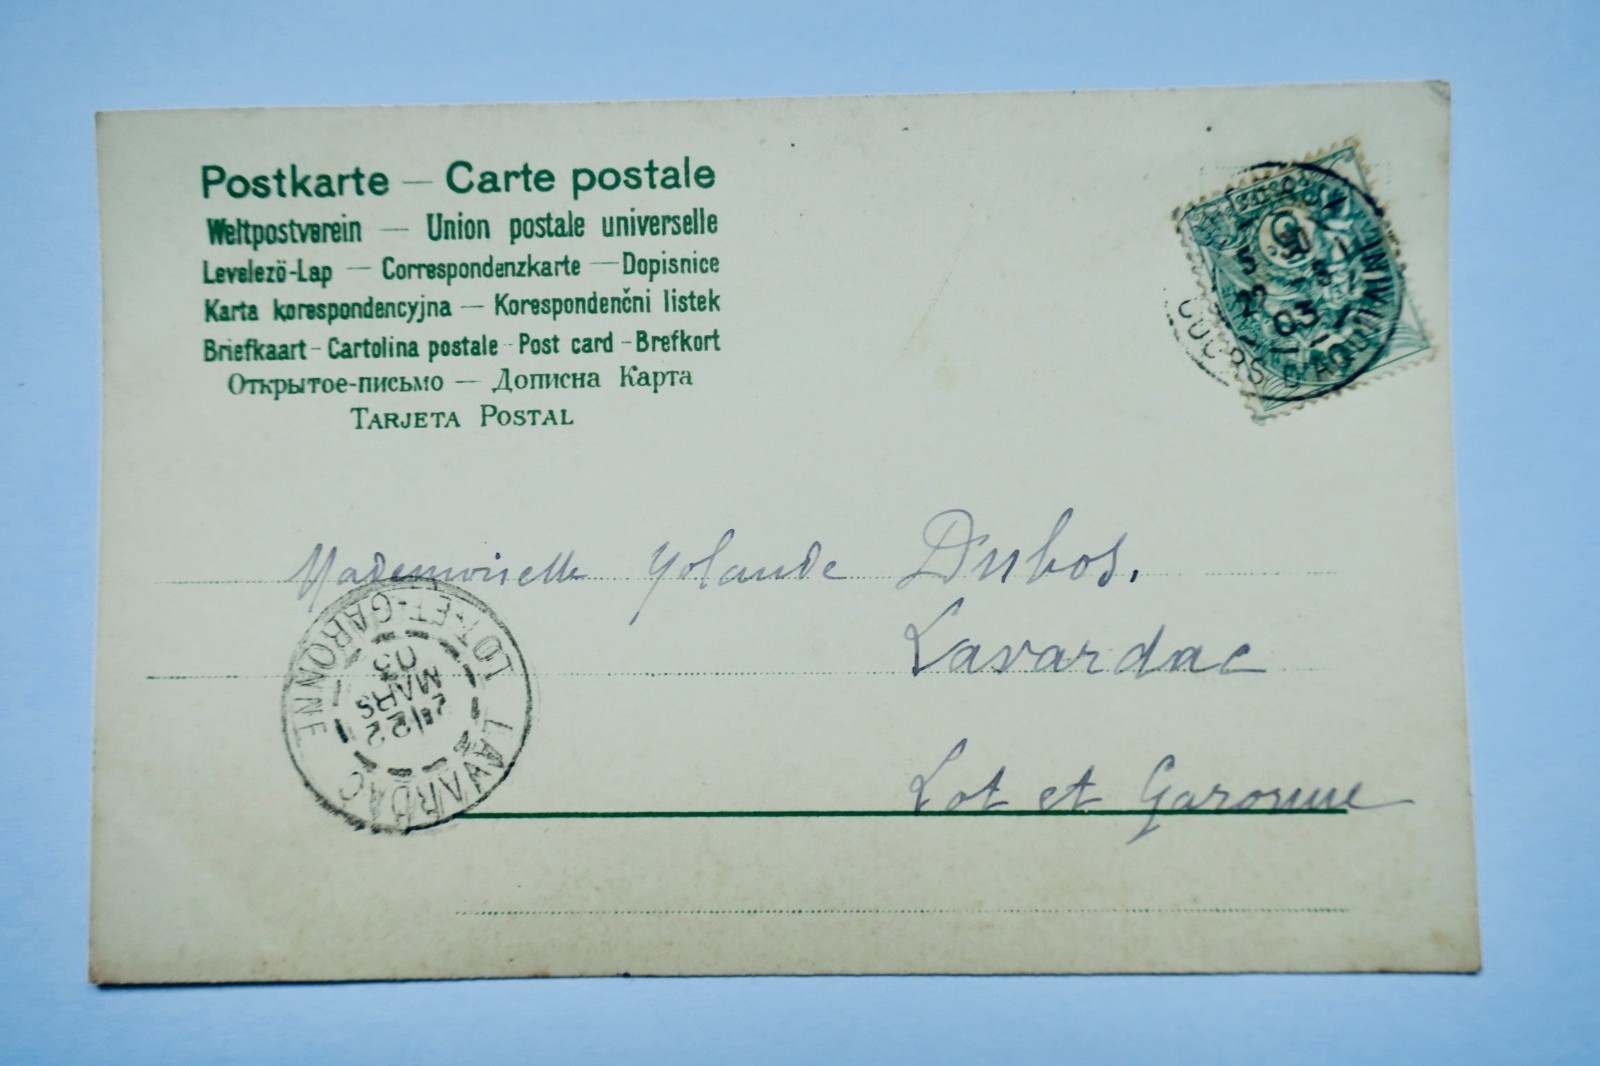 Postkarte — Carte postale
Weltpostverein — Union postale universelle
Levelező-Lap — Correspondenzkarte — Dopisnice
Karta korespondencyjna — Korespondenčni listek
Briefkaart - Cartolina postale - Post card - Brefkort
Открытое-письмо — Дописна Карта
TARJETA POSTAL
COURS D'AQUITAINE
22
03
Mademoiselle Yolande Dubos.
Lavardac
Lot et Garonne
LAVARDAC
LOT-ET-GARONNE
22
MARS
03